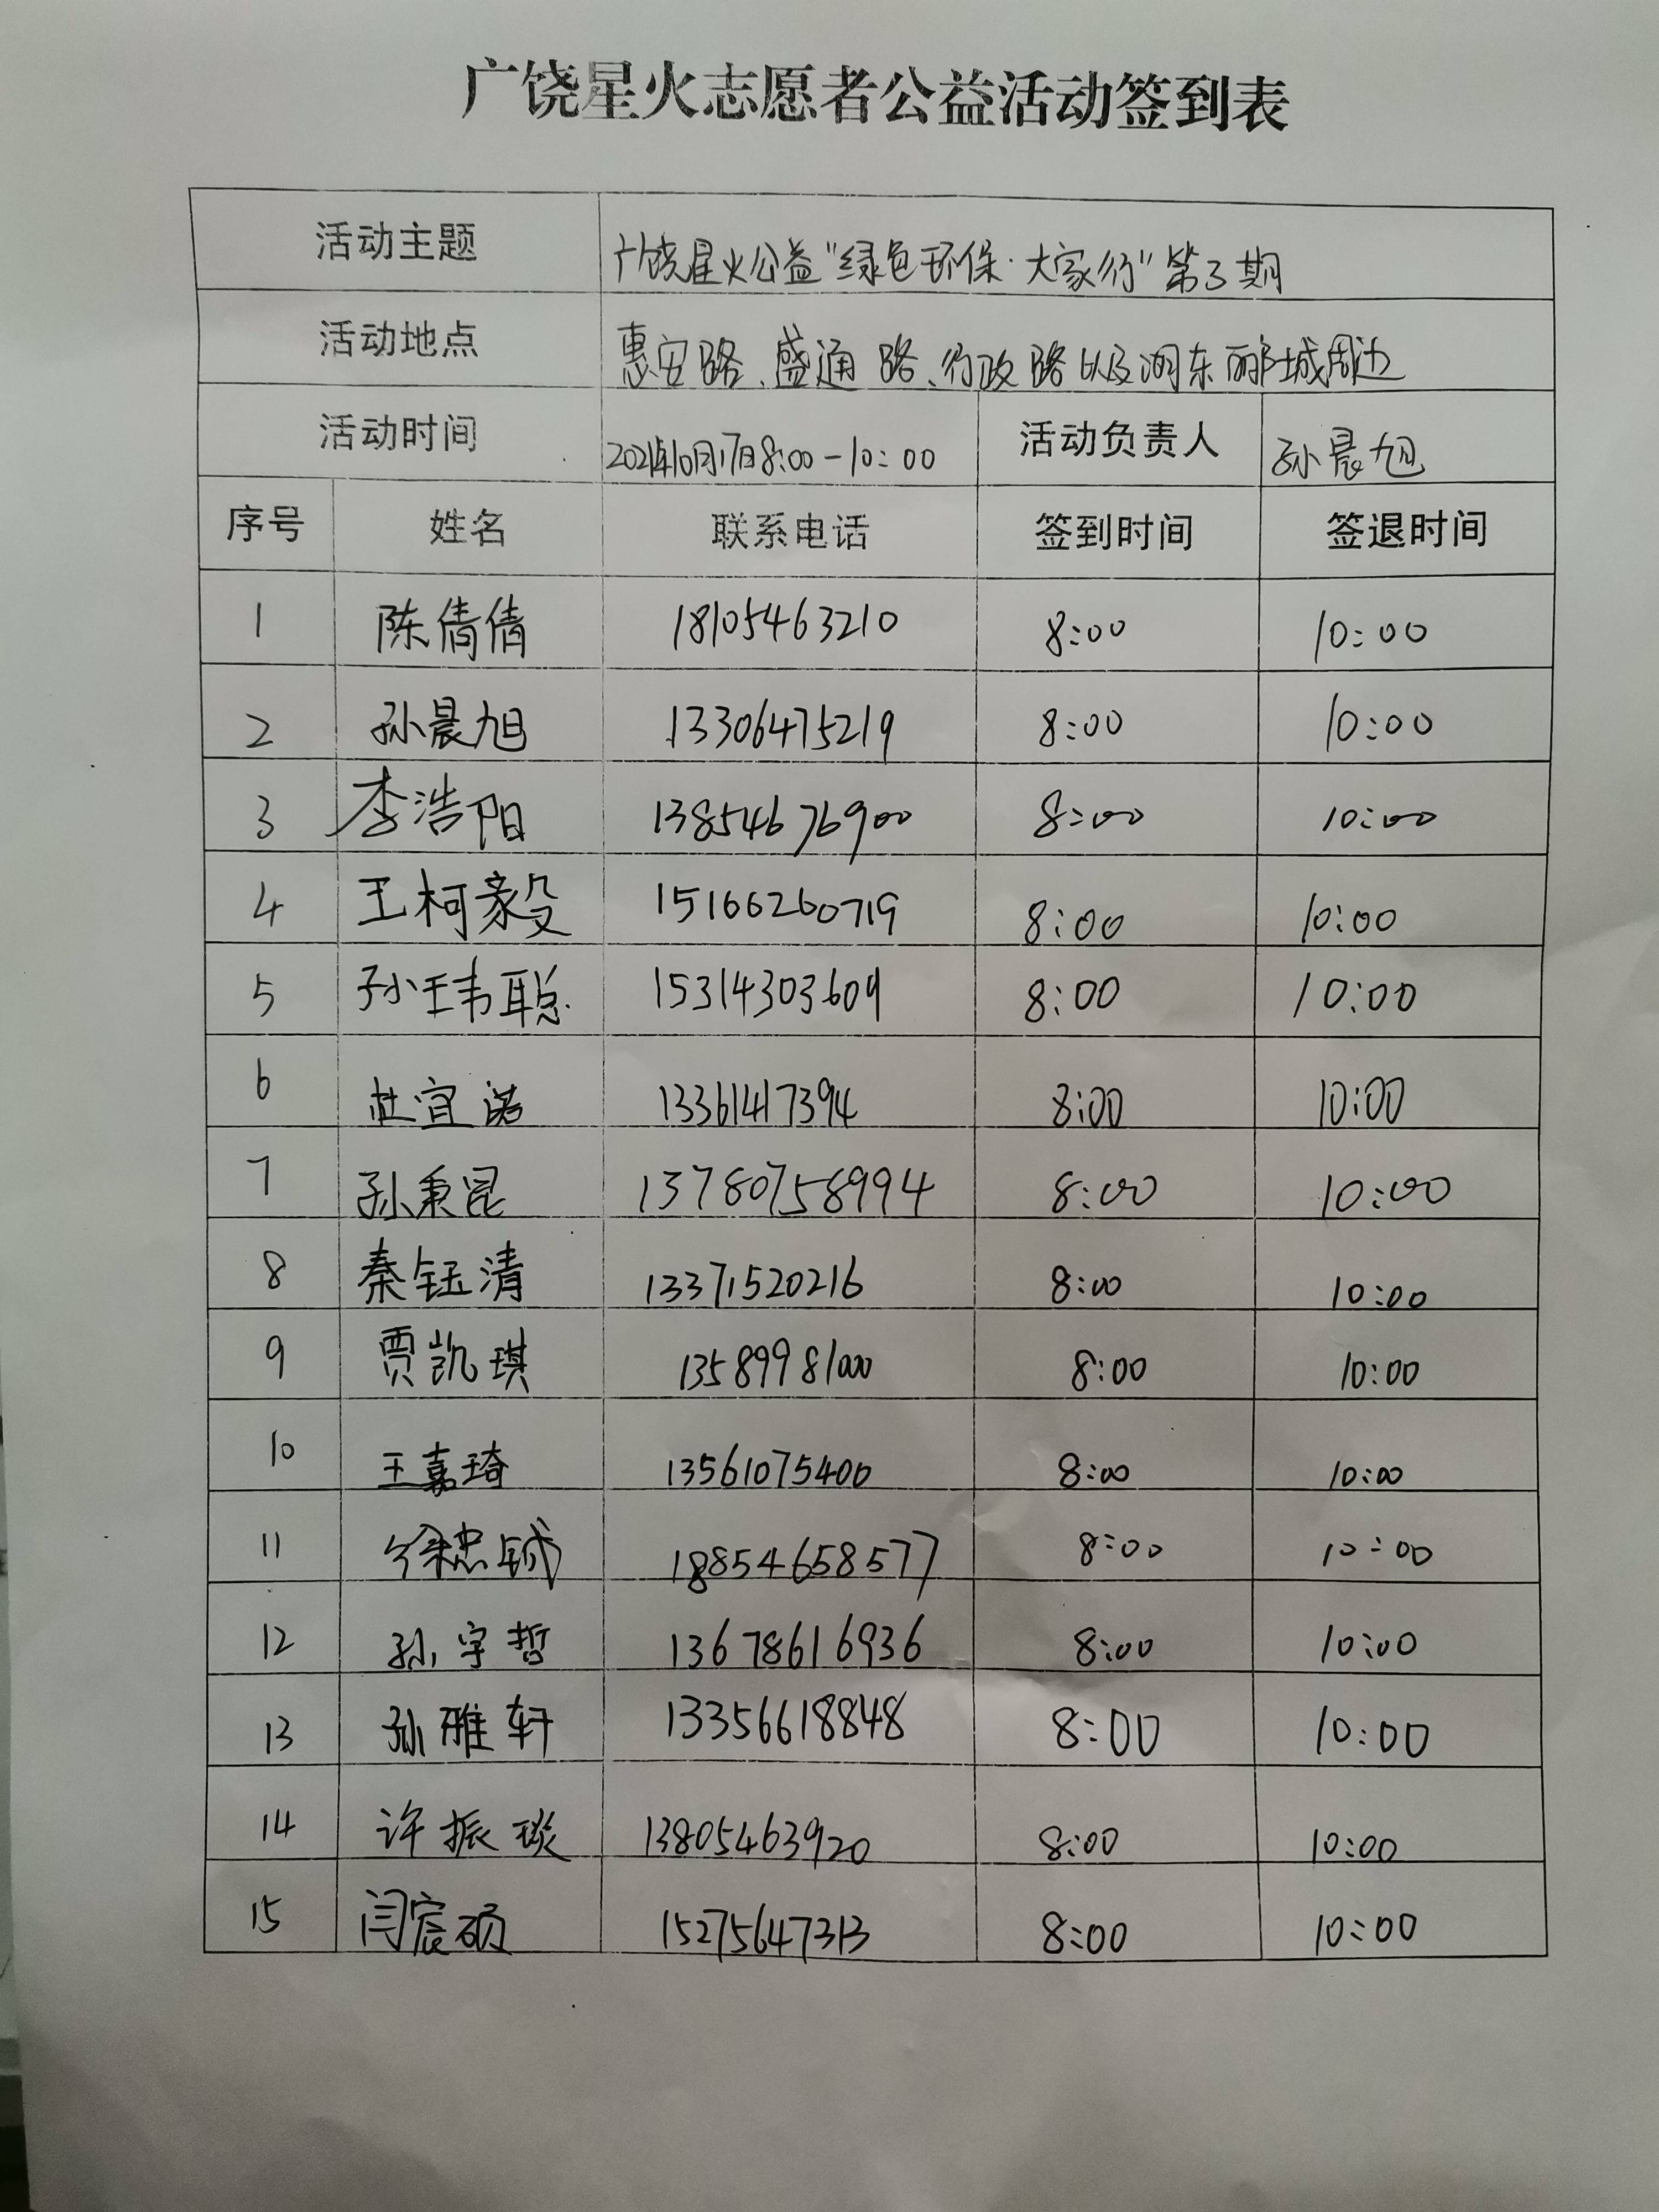 广饶星火志愿者公益活动签到表
活动主题 广饶星火公益“绿色环保·大家行”第3期
活动地点 惠安路、盛通路、行政路以及湖东郦城周边
活动时间 2021年10月17日8:00-10:00 活动负责人 孙晨旭
序号 姓名 联系电话 签到时间 签退时间
1 陈倩倩 18105463210 8:00 10:00
2 孙晨旭 13306475219 8:00 10:00
3 李浩阳 13854676900 8:00 10:00
4 王柯毅 15166260719 8:00 10:00
5 孙玮聪 15314303609 8:00 10:00
6 杜宜诺 13361417394 8:00 10:00
7 孙秉昆 13780758994 8:00 10:00
8 秦钰清 13371520216 8:00 10:00
9 贾凯琪 13589981000 8:00 10:00
10 王嘉琦 13561075400 8:00 10:00
11 徐忠铖 18854658577 8:00 10:00
12 孙宇哲 13678616936 8:00 10:00
13 孙雅轩 13356618848 8:00 10:00
14 许振琰 13805463920 8:00 10:00
15 闫宸硕 15275647313 8:00 10:00